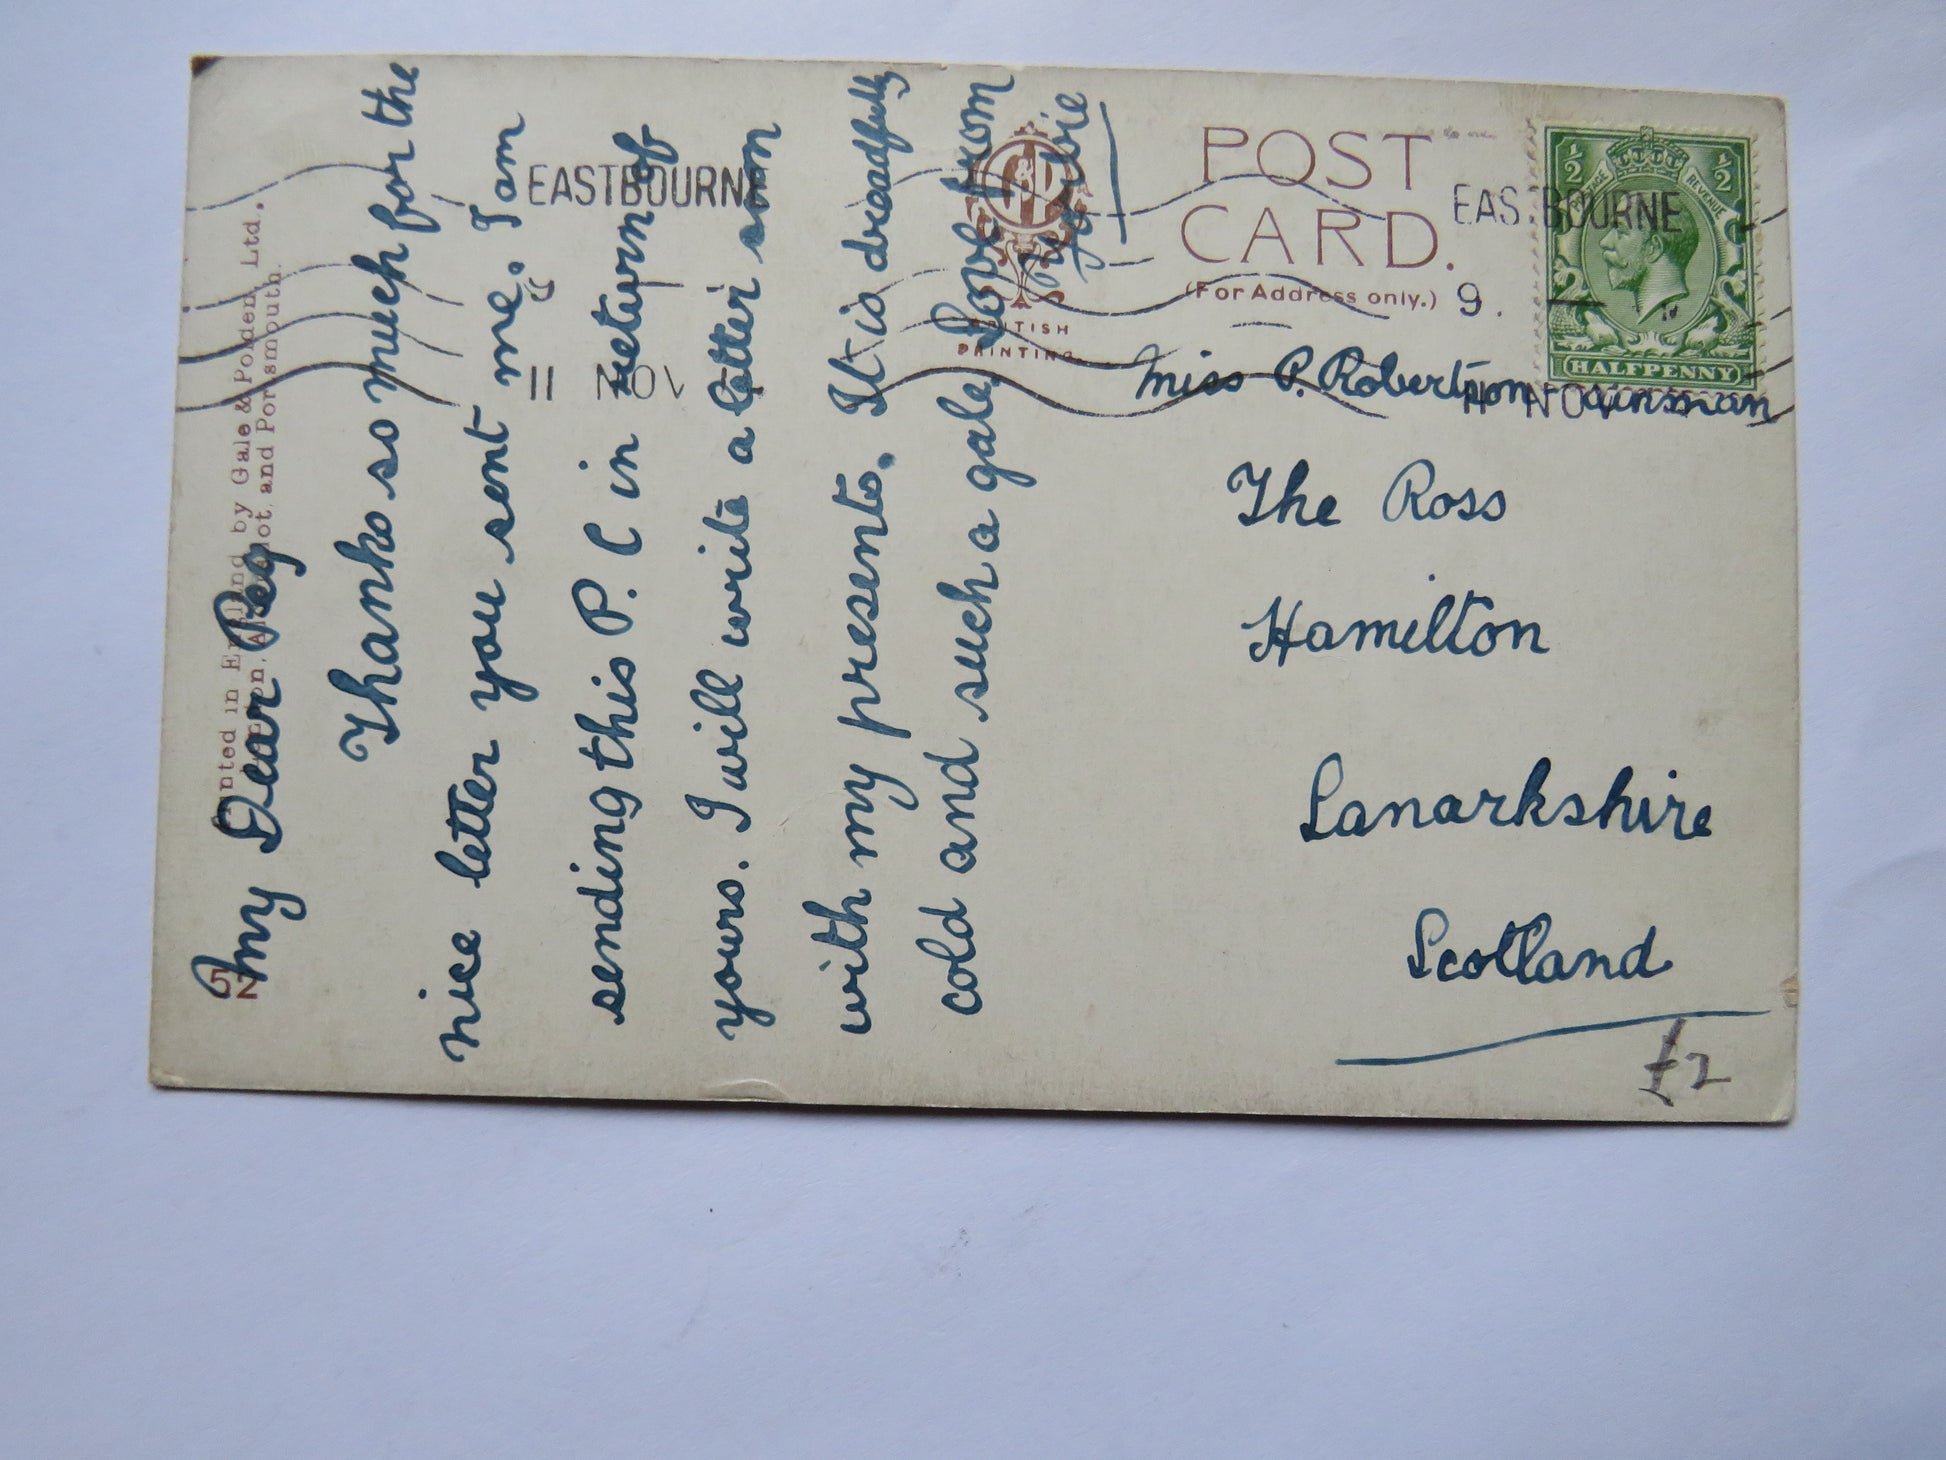 My Dear Peg
Thanks so much for the
nice letter you sent me. I am
sending this P. C in return of
yours. I will write a letter soon
with my presents. It is dreadfully
cold and such a gale. Love from
POST
CARD.
(For Address only.)
BRITISH
PRINTING.
EASTBOURNE
11 NOV
EASTBOURNE
9.
11 NOV
½ ½
POSTAGE REVENUE
HALFPENNY
Miss P. Robertson
The Ross
Hamilton
Lanarkshire
Scotland
£2
Printed in England by Gale & Polden, Ltd.,
London, Aldershot, and Portsmouth.